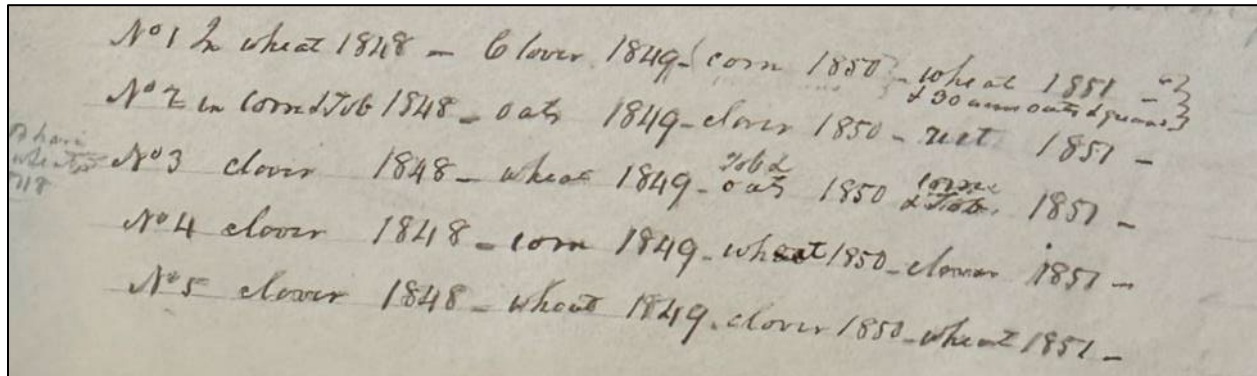 No 1 In wheat 1848 - Clover 1849 - corn 1850 - wheat 1851 - "}
& 30 acres oats & guano}
No 2 in Corn & Tob 1848 - oats 1849 - clover 1850 - rest 1851 -
No 3 clover 1848 - wheat 1849 - Tob & oats 1850 corn & Tob. 1851 -
No 4 clover 1848 - corn 1849 - wheat 1850 - clover 1851 -
No 5 clover 1848 - wheat 1849 - clover 1850 - wheat 1851 -
wheat